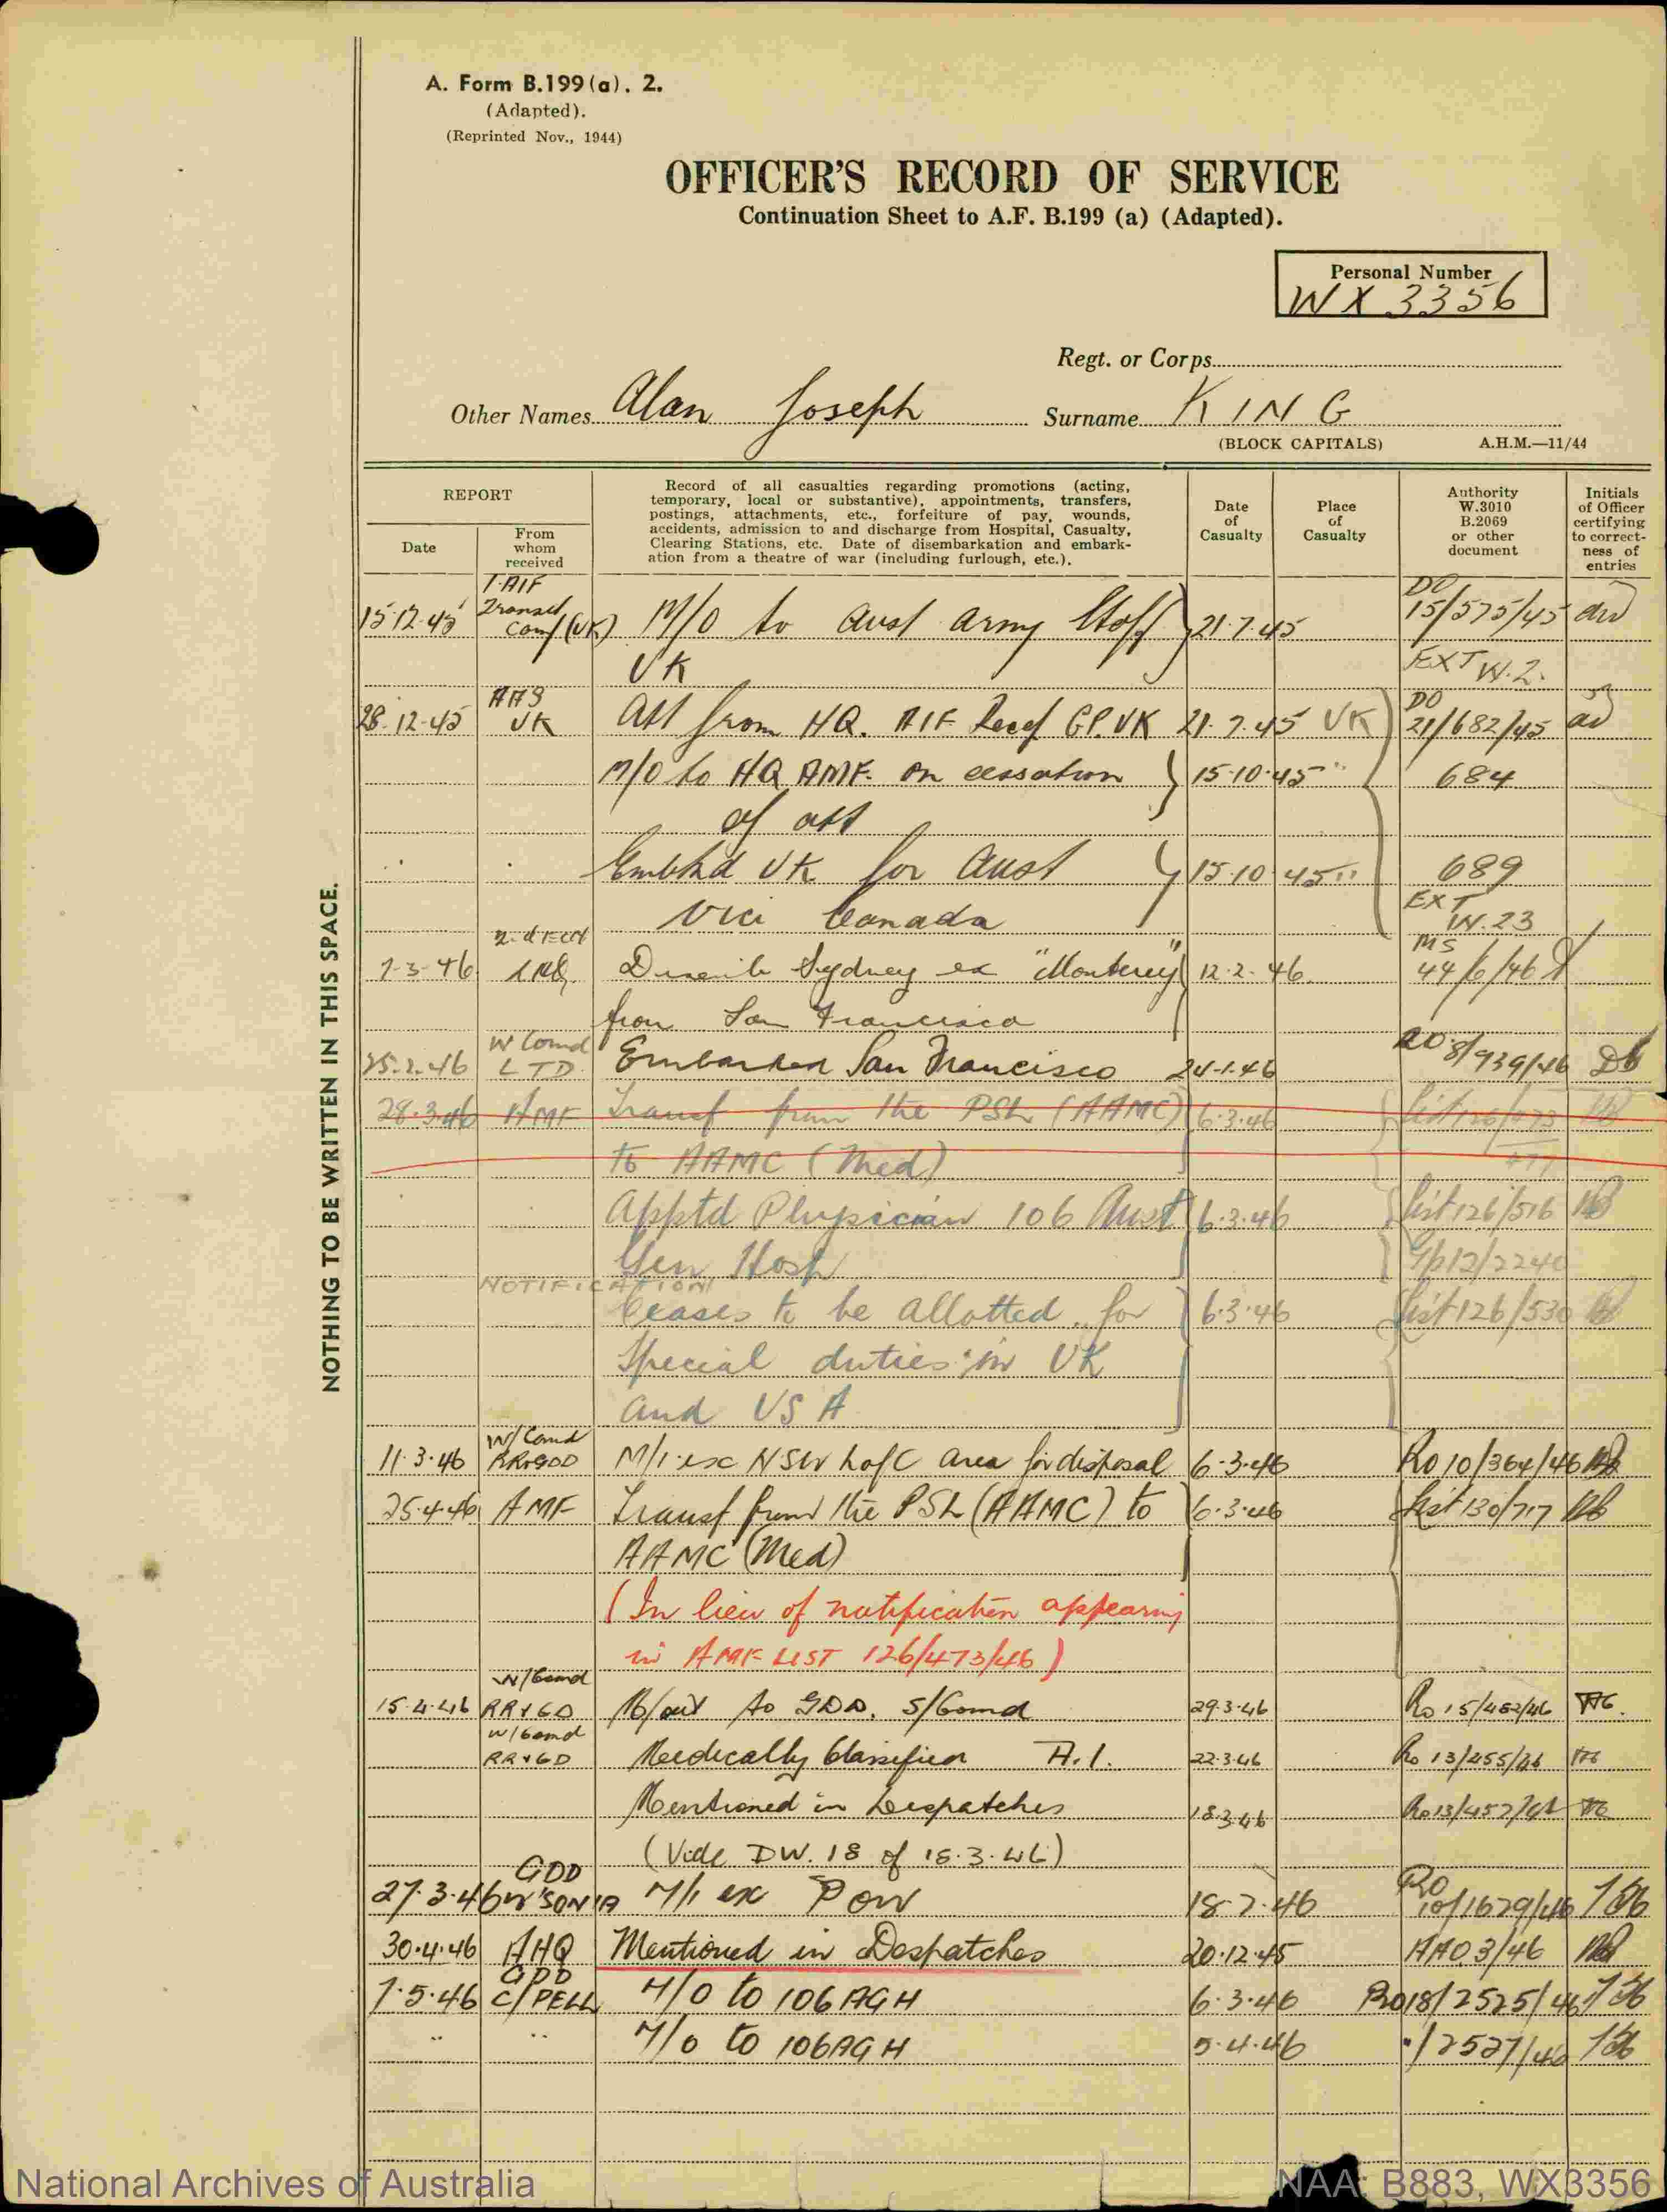 A. Form B.199 (a). 2.
(Adapted).
(Reprinted Nov., 1944)
OFFICER'S RECORD OF SERVICE
Continuation Sheet to A.F. B.199 (a) (Adapted).
Personal Number
WX 3356
Regt. or Corps
Other Names Alan Joseph Surname KING
(BLOCK CAPITALS) A.H.M.—11/44
NOTHING TO BE WRITTEN IN THIS SPACE.
REPORT
Date
From whom received
Record of all casualties regarding promotions (acting,
temporary, local or substantive), appointments, transfers,
postings, attachments, etc., forfeiture of pay, wounds,
accidents, admission to and discharge from Hospital, Casualty,
Clearing Stations, etc. Date of disembarkation and embark-
ation from a theatre of war (including furlough, etc.).
Date of Casualty
Place of Casualty
Authority W.3010 B.2069 or other document
Initials of Officer certifying to correct- ness of entries
1 AIF
15.12.45 Transit Camp (UK) M/O to Aust Army Staff 21.7.45 DO 15/575/45
UK EXT W.2.
AAS
28.12.45 UK Att from HQ. AIF Recep GP. UK 21.7.45 UK DO 21/682/45
M/O to HQ AMF. on cessation 15.10.45 " 684
of att
Embkd UK for Aust 15.10.45 " 689
via Canada EXT W.23
7.3.46 2 Ech LHQ Disemb Sydney ex "Monterey" 12.2.46 MS 44/6/46
from San Francisco
W Comd
25.2.46 LTD Embarked San Francisco 24.1.46 RO 8/939/46
28.3.46 AMF Transf from the PSL (AAMC) 6.3.46 List 126/473
to AAMC (Med)
Apptd Physician 106 Aust 6.3.46 List 126/516
Gen Hosp Gp12/2240
NOTIFICATION
Ceases to be allotted for 6.3.46 List 126/530
Special duties in UK
and USA
W/Comd
11.3.46 RR&GDD M/I ex NSW L of C area for disposal 6.3.46 Ro 10/364/46
25.4.46 AMF Transf from the PSL (AAMC) to 6.3.46 List 130/717
AAMC (Med)
(In lieu of notification appearing
in AMF LIST 126/473/46)
W/Comd
15.4.46 RR&GD M/out to GDD. S/Comd 29.3.46 Ro 15/452/46
W/Comd
RR&GD Medically Classified A.1. 22.3.46 Ro 13/455/46
Mentioned in Despatches 18.3.46 Ro 13/452/46
(Vide DW. 18 of 18.3.46)
GDD
27.3.46 W'SONIA M/I ex POW 18.2.46 RO 10/1629/46
30.4.46 AHQ Mentioned in Despatches 20.12.45 AAO.3/46
GDD
7.5.46 C/PELL M/O to 106 AGH 6.3.46 RO18/2525/46
" " M/O to 106 AGH 5.4.46 "/2527/46
National Archives of Australia NAA: B883, WX3356